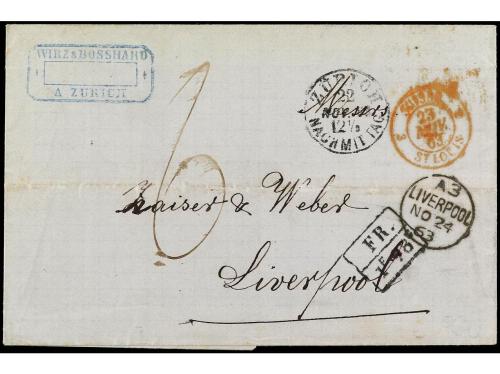 WIRZ & BOSSHARD
A ZURICH
ZÜRICH
22
NOV
12½
NACHMITTAG
23
NOV.
63
ST LOUIS
Messrs
A3
LIVERPOOL
NO 24
63
Kaiser & Weber
6
FR.
Liverpool